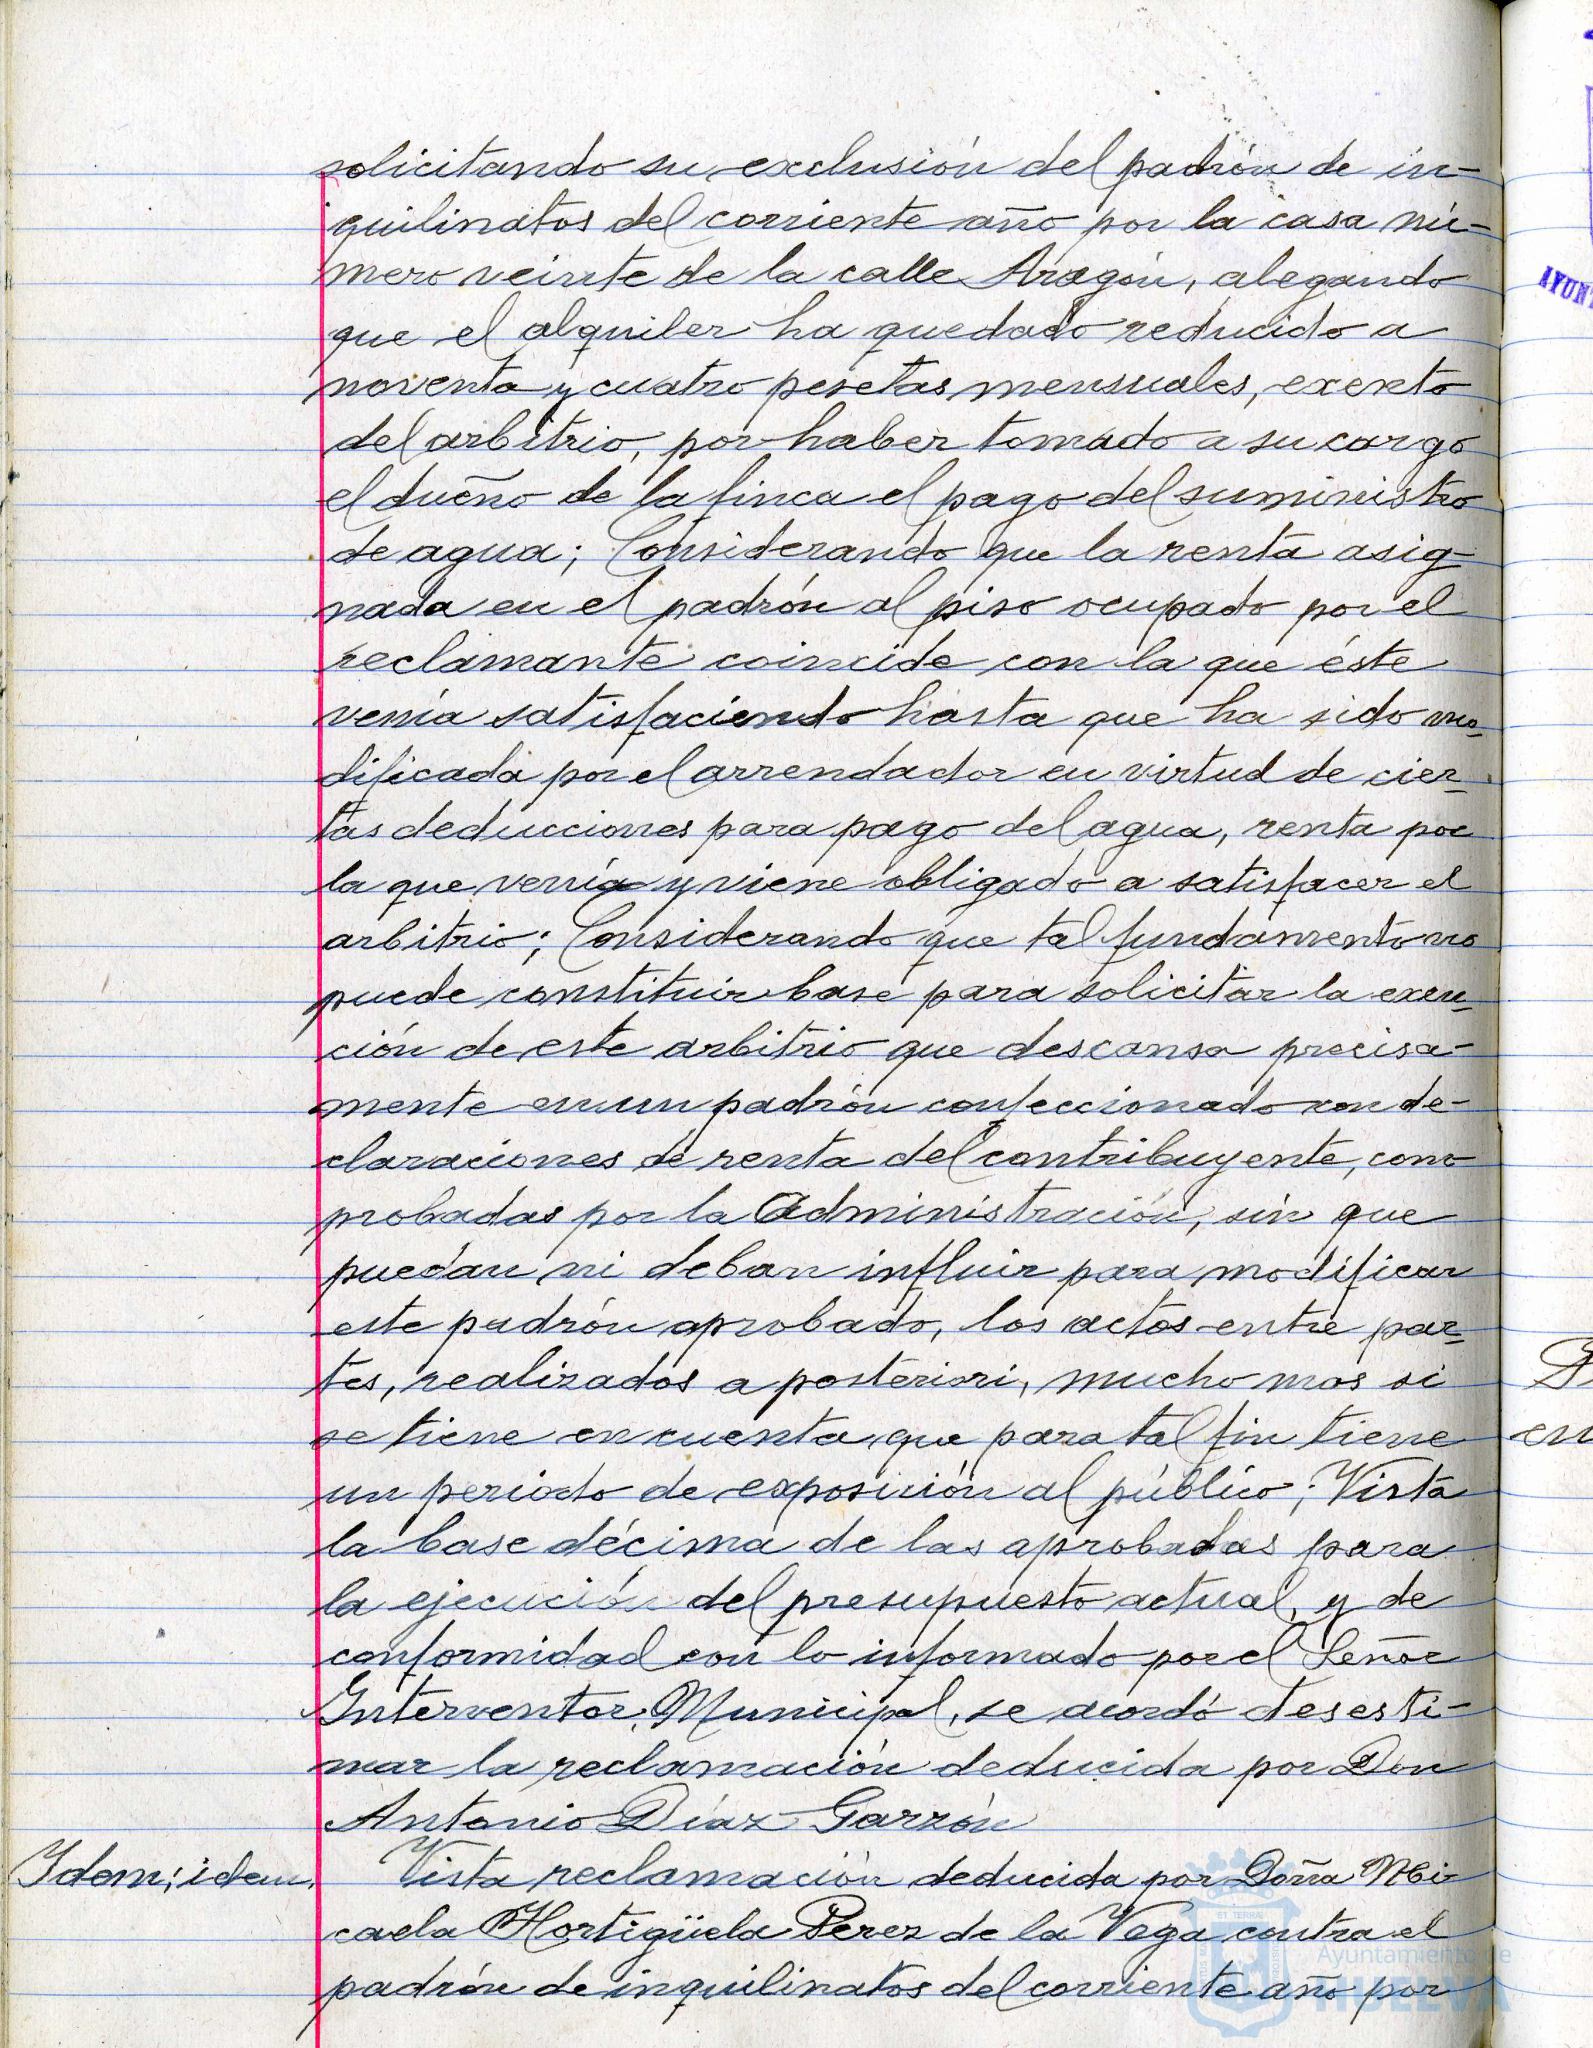 solicitando su exclusión del padrón de in-
quilinatos del corriente año por la casa nú-
mero veinte de la calle Aragón, alegando
que el alquiler ha quedado reducido a
noventa y cuatro pesetas mensuales, exento
del arbitrio, por haber tomado a su cargo
el dueño de la finca el pago del suministro
de agua; Considerando que la renta asig-
nada en el padrón al piso ocupado por el
reclamante coincide con la que éste
venía satisfaciendo hasta que ha sido mo-
dificada por el arrendador en virtud de cier-
tas deducciones para pago del agua, renta por
la que venía y viene obligado a satisfacer el
arbitrio; Considerando que tal fundamento no
puede constituir base para solicitar la exen-
ción de este arbitrio que descansa precisa-
mente en un padrón confeccionado con de-
claraciones de renta del contribuyente, com-
probadas por la Administración, sin que
puedan ni deban influir para modificar
este padrón aprobado, los actos entre par-
tes, realizados a posteriori, mucho mas si
se tiene en cuenta que para tal fin tiene
un periodo de exposición al público; Vista
la base décima de las aprobadas para
la ejecución del presupuesto actual, y de
conformidad con lo informado por el Señor
Interventor Municipal, se acordó desesti-
mar la reclamación deducida por Don
Antonio Díaz Garzón
Idem; idem. Vista reclamación deducida por Doña Mi-
caela Hortigüela Perez de la Vega contra el
padrón de inquilinatos del corriente año por
AYUNT
en
Ayuntamiento de
HUELVA